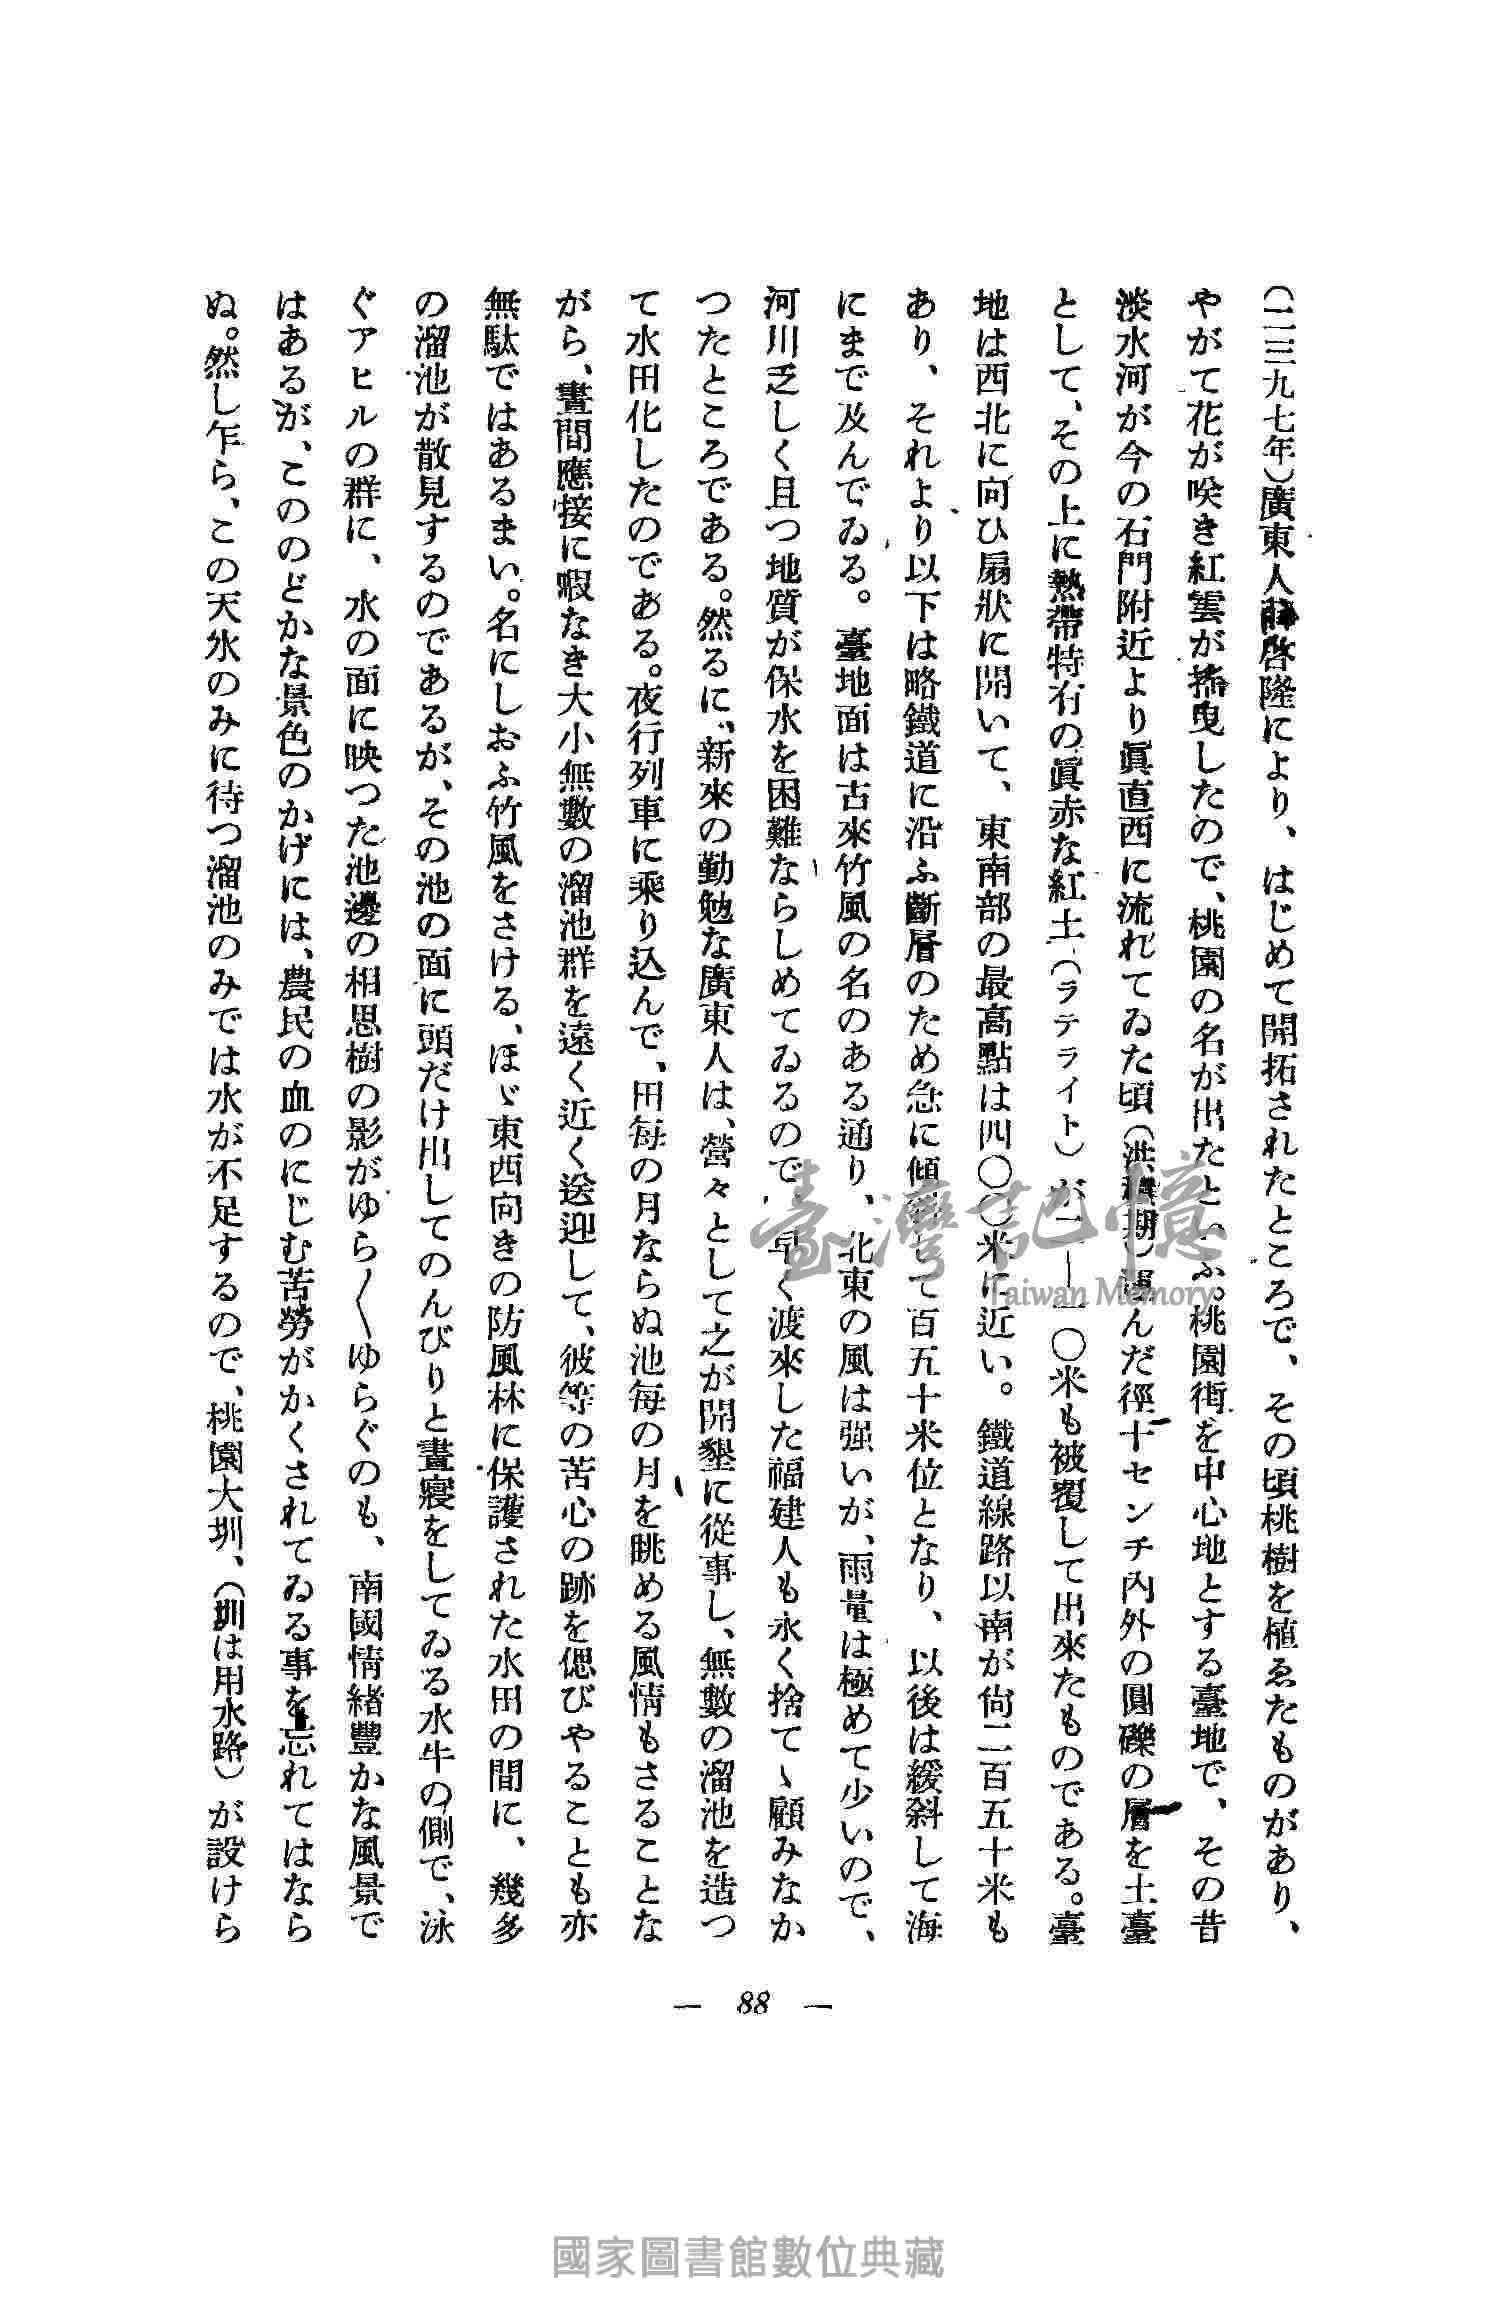 (二三九七年)廣東人薛啓隆により、はじめて開拓されたところで、その頃桃樹を植ゑたものがあり、
やがて花が咲き紅雲が搖曳したので、桃園の名が出たといふ。桃園街を中心地とする臺地で、その昔
淡水河が今の石門附近より眞直西に流れてゐた頃(洪積期)運んだ徑十センチ內外の圓礫の層を土臺
として、その上に熱帶特有の眞赤な紅土(ラテライト)が一—一〇米も被覆して出來たものである。臺
地は西北に向ひ扇狀に開いて、東南部の最高點は四〇〇米に近い。鐵道線路以南が尙二百五十米も
あり、それより以下は略鐵道に沿ふ斷層のため急に傾斜して百五十米位となり、以後は緩斜して海
にまで及んでゐる。臺地面は古來竹風の名のある通り、北東の風は强いが、雨量は極めて少いので、
河川乏しく且つ地質が保水を困難ならしめてゐるので、早く渡來した福建人も永く捨てゝ顧みなか
つたところである。然るに、新來の勤勉な廣東人は、營々として之が開墾に從事し、無數の溜池を造つ
て水田化したのである。夜行列車に乘り込んで、田每の月ならぬ池每の月を眺める風情もさることな
がら、晝間應接に暇なき大小無數の溜池群を遠く近く送迎して、彼等の苦心の跡を偲びやることも亦
無駄ではあるまい。名にしおふ竹風をさける、ほゞ東西向きの防風林に保護された水田の間に、幾多
の溜池が散見するのであるが、その池の面に頭だけ出してのんびりと晝寢をしてゐる水牛の側で、泳
ぐアヒルの群に、水の面に映つた池邊の相思樹の影がゆら〱ゆらぐのも、南國情緖豐かな風景で
はあるが、こののどかな景色のかげには、農民の血のにじむ苦勞がかくされてゐる事を忘れてはなら
ぬ。然し乍ら、この天水のみに待つ溜池のみでは水が不足するので、桃園大圳、(圳は用水路)が設けら
— 88 —
臺灣記憶
Taiwan Memory
國家圖書館數位典藏